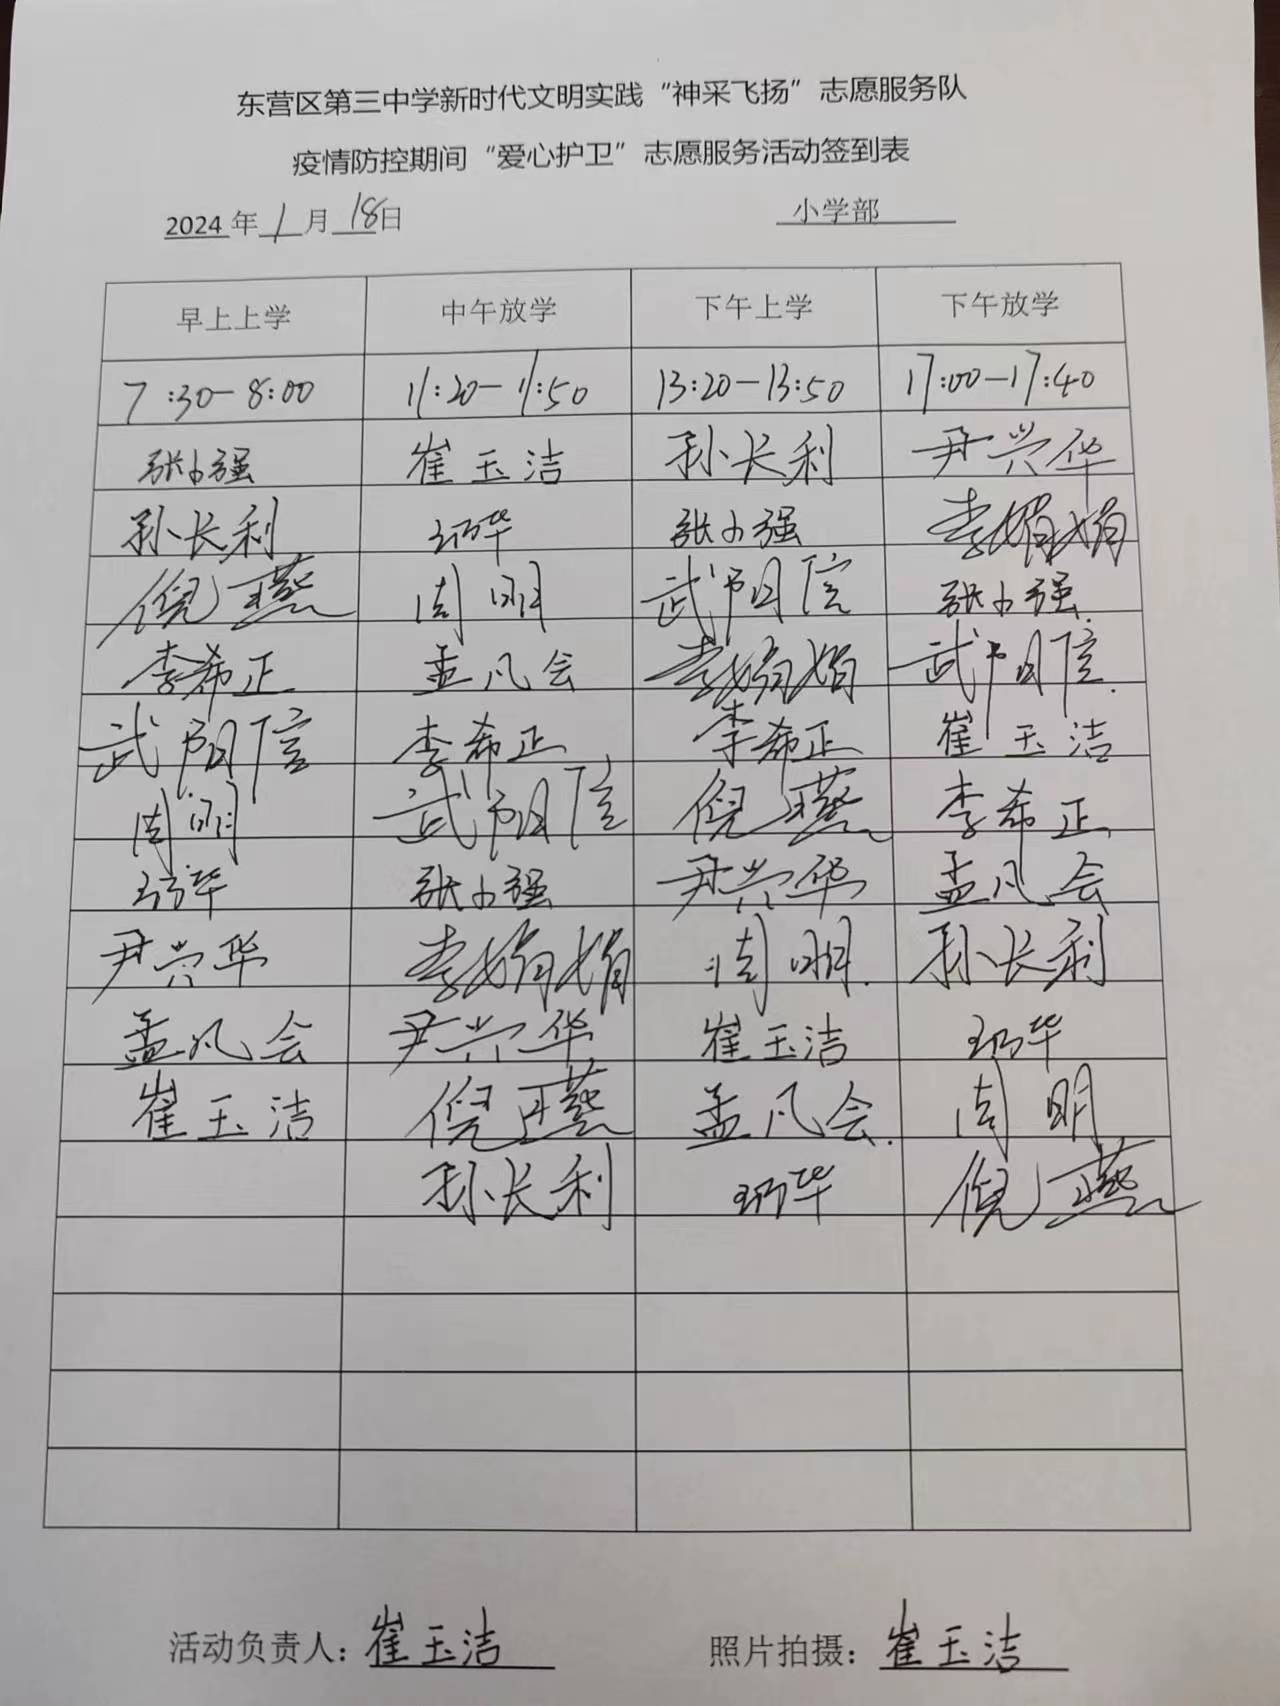 东营区第三中学新时代文明实践“神采飞扬”志愿服务队
疫情防控期间“爱心护卫”志愿服务活动签到表
2024年1月18日 小学部
早上上学 中午放学 下午上学 下午放学
7:30-8:00 11:20-11:50 13:20-13:50 17:00-17:40
张小强 崔玉洁 孙长利 尹兴华
孙长利 张小强 李娟娟
倪燕 周明 武阳信 张小强
李希正 孟凡会 李娟娟 武阳信
武阳信 李希正 李希正 崔玉洁
周明 武阳信 倪燕 李希正
张小强 尹兴华 孟凡会
尹兴华 李娟娟 周明 孙长利
孟凡会 尹兴华 崔玉洁
崔玉洁 倪燕 孟凡会 周明
孙长利 倪燕
活动负责人：崔玉洁 照片拍摄：崔玉洁